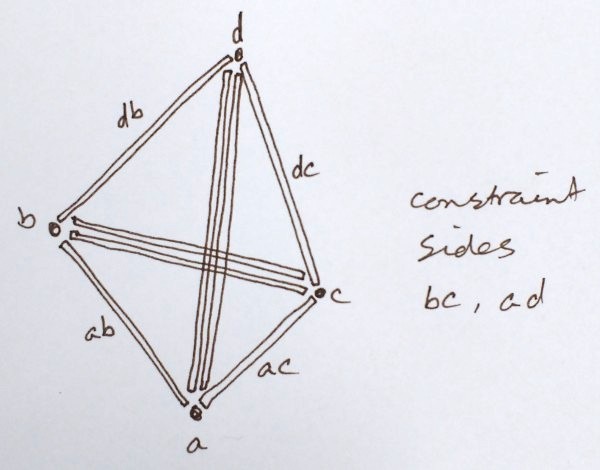 d
db
dc
b
c
ab
ac
a
constraint
sides
bc, ad